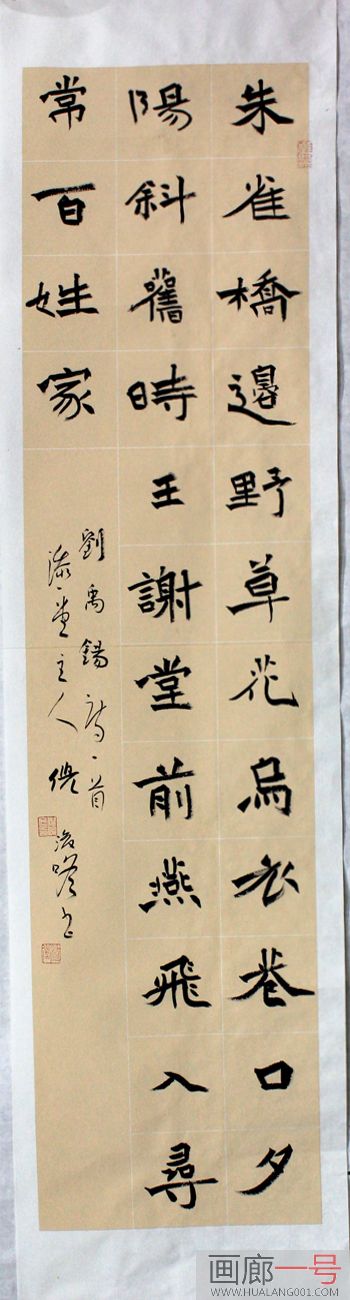 朱雀橋邊野草花烏衣巷口夕
陽斜舊時王謝堂前燕飛入尋
常百姓家
劉禹錫詩一首
主人
画廊一号
WWW.HUALANG001.COM